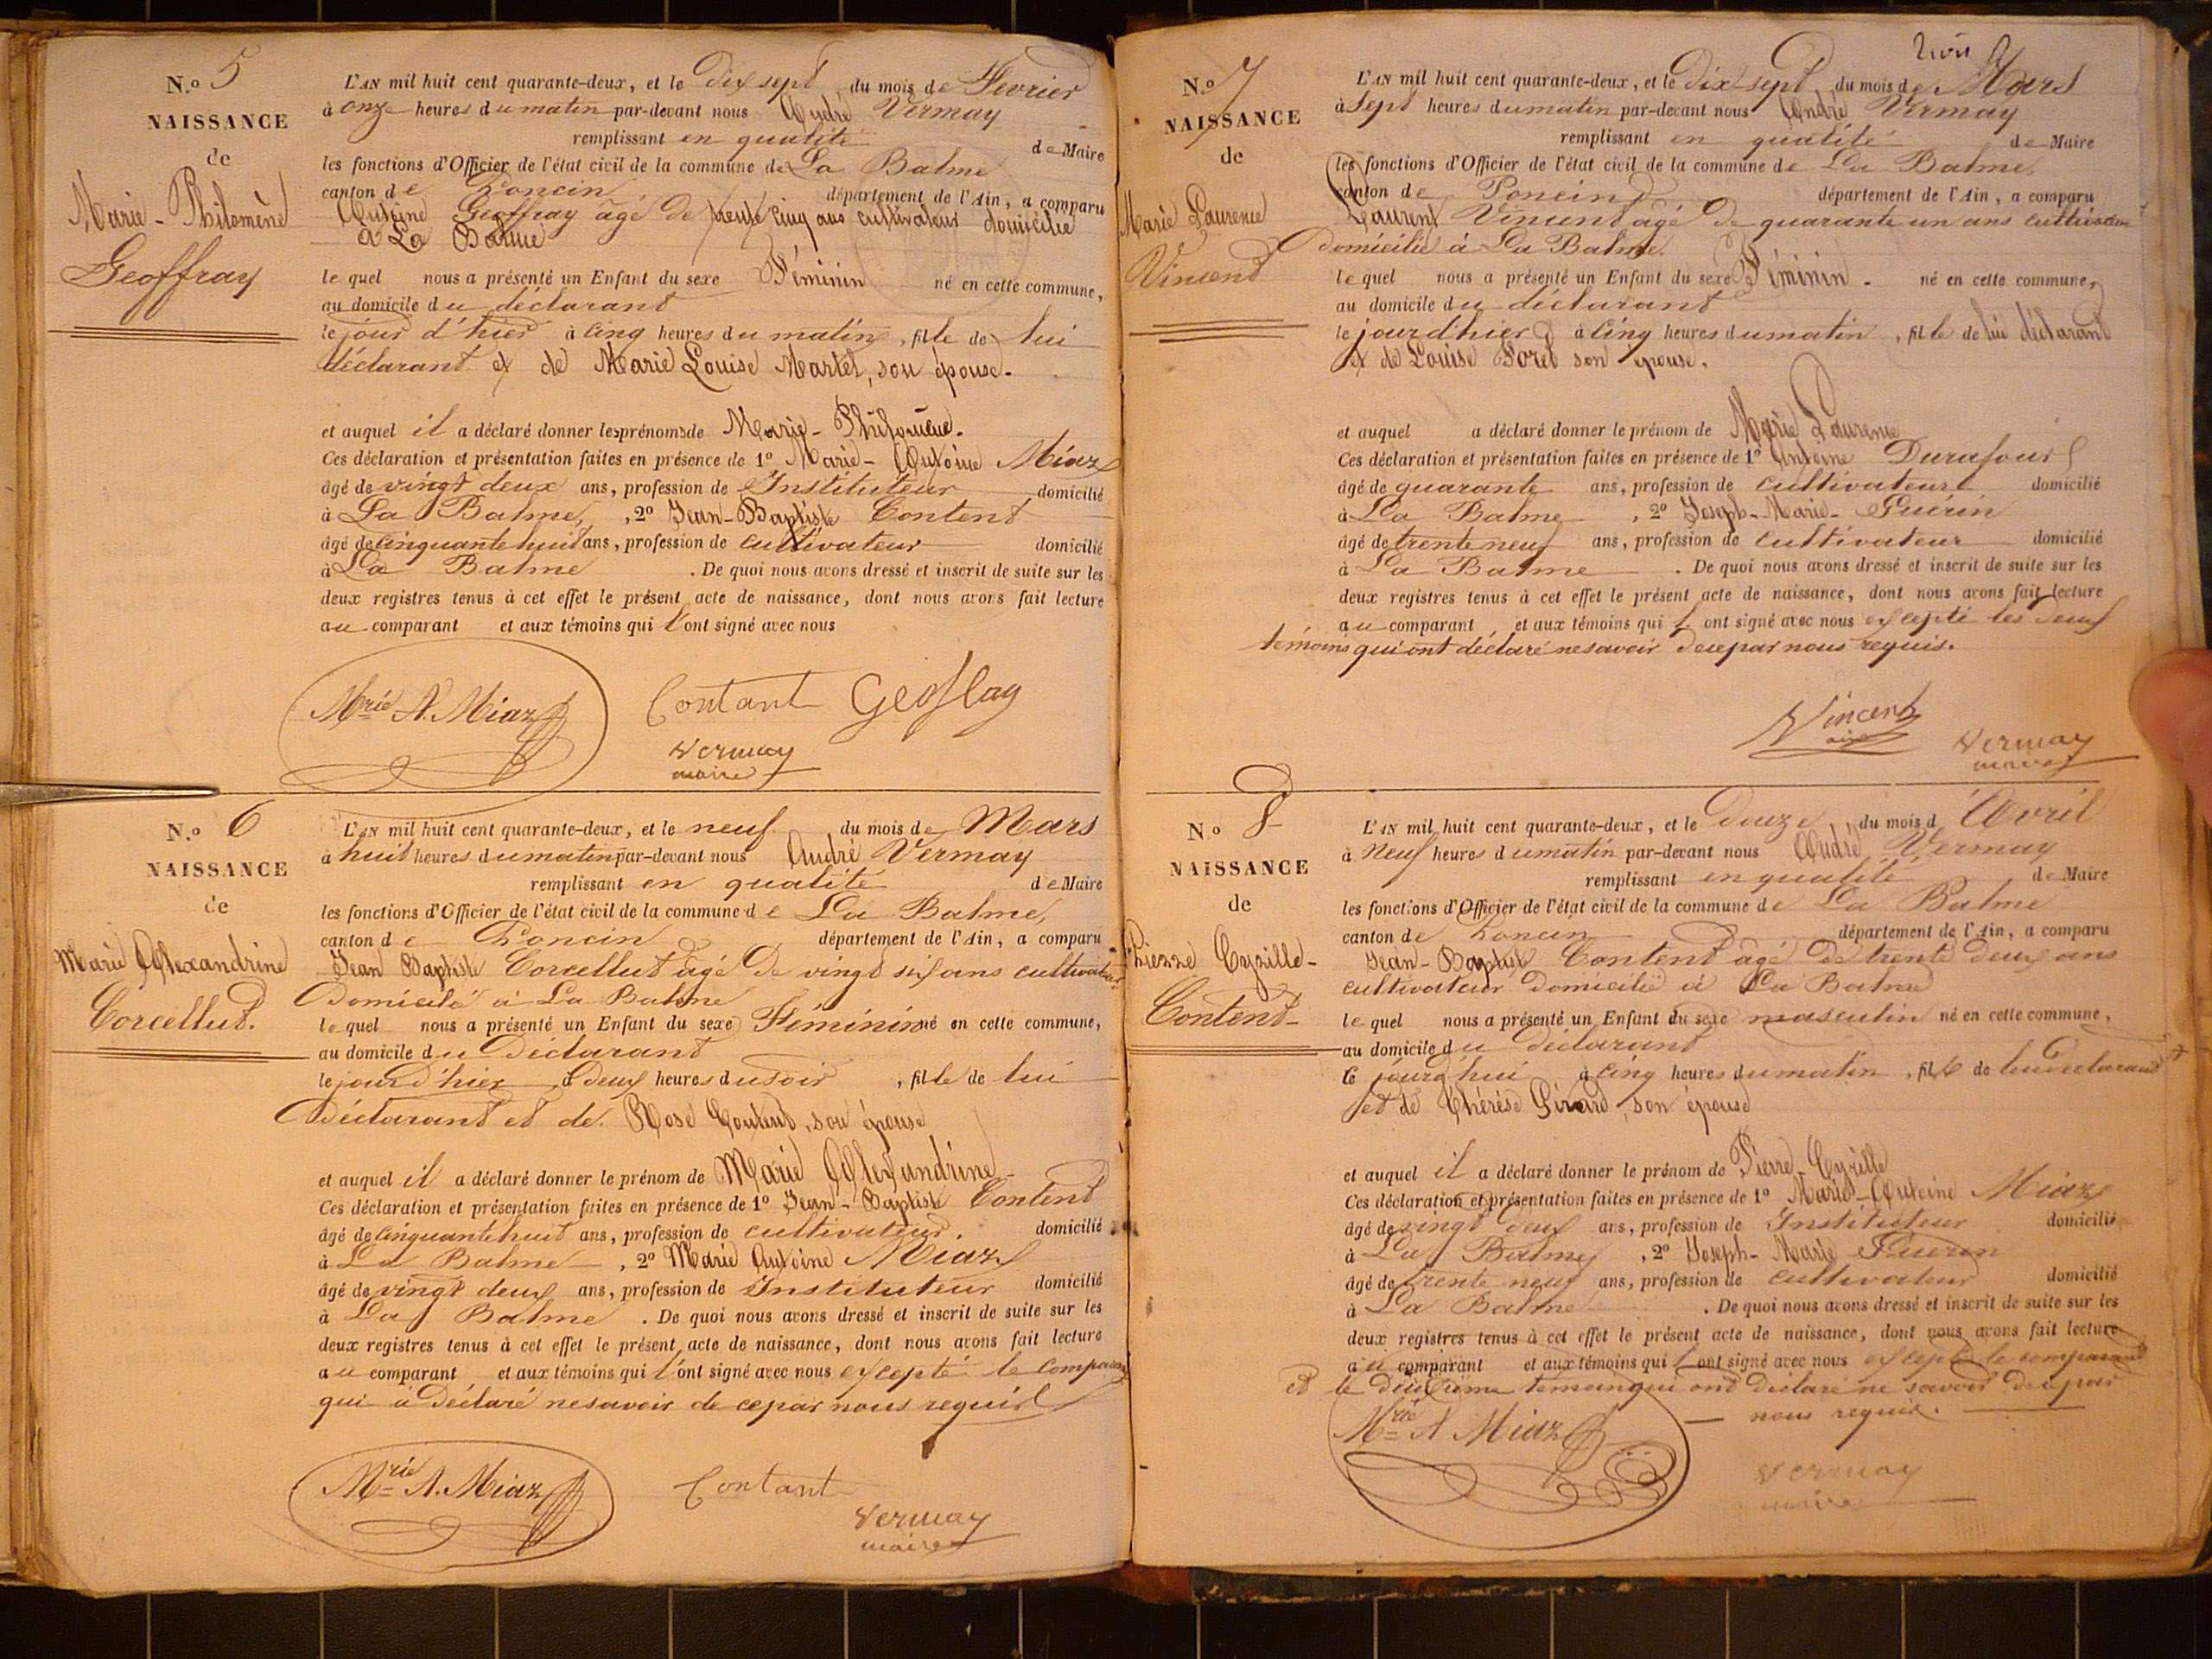 N.o 5
NAISSANCE
de
Marie - Philomène
Geoffray
L'AN mil huit cent quarante-deux, et le Dix sept du mois de Fevrier
à onze heures du matin par-devant nous André Vermay
remplissant en qualité de Maire
les fonctions d'Officier de l'état civil de la commune de La Balme
canton de Poncin département de l'Ain, a comparu
Antoine Geoffray âgé de trente cinq ans cultivateur domicilié
à La Balme
le quel nous a présenté un Enfant du sexe Féminin né en cette commune,
au domicile du déclarant
le jour d'hier à cinq heures du matin, fille de lui
déclarant et de Marie Louise Martel, son épouse.
et auquel il a déclaré donner les prénoms de Marie - Philomène.
Ces déclaration et présentation faites en présence de 1o Marie - Antoine Miaz
âgé de vingt deux ans, profession de Instituteur domicilié
à La Balme, , 2o Jean-Baptiste Content
âgé de cinquante huit ans, profession de cultivateur domicilié
à La Balme . De quoi nous avons dressé et inscrit de suite sur les
deux registres tenus à cet effet le présent acte de naissance, dont nous avons fait lecture
au comparant et aux témoins qui l'ont signé avec nous
Mrie A. Miaz Contant Geoflay
Vermay
maire
N.o 6
NAISSANCE
de
Marie Alexandrine
Corcellut.
L'AN mil huit cent quarante-deux, et le neuf du mois de Mars
à huit heures du matin par-devant nous André Vermay
remplissant en qualité de Maire
les fonctions d'Officier de l'état civil de la commune de La Balme,
canton de Poncin département de l'Ain, a comparu
Jean Baptiste Corcellut âgé De vingt six ans cultivateur
Domicilié à La Balme
le quel nous a présenté un Enfant du sexe Féminin né en cette commune,
au domicile du Déclarant
le jour d'hier à deux heures du soir , fille de lui
Déclarant et de Rose Content, son épouse
et auquel il a déclaré donner le prénom de Marie Alexandrine
Ces déclaration et présentation faites en présence de 1o Jean - Baptiste Content
âgé de cinquante huit ans, profession de cultivateur. domicilié
à La Balme , 2o Marie Antoine Miaz
âgé de vingt deux ans, profession de Instituteur domicilié
à La Balme . De quoi nous avons dressé et inscrit de suite sur les
deux registres tenus à cet effet le présent acte de naissance, dont nous avons fait lecture
au comparant et aux témoins qui l'ont signé avec nous excepté le comparant
qui a Déclaré ne savoir de ce par nous requis
Mrie A. Miaz Contant
Vermay
maire
N.o 7
NAISSANCE
de
Marie Laurence
Vincent
L'AN mil huit cent quarante-deux, et le Dix sept du mois de Mars
à sept heures du matin par-devant nous André Vermay
remplissant en qualité de Maire
les fonctions d'Officier de l'état civil de la commune de La Balme,
canton de Poncin département de l'Ain, a comparu
Laurent Vincent âgé De quarante un ans cultivateur
Domicilié à La Balme.
le quel nous a présenté un Enfant du sexe Féminin. né en cette commune,
au domicile du déclarant
le jour d'hier à cinq heures du matin , fille de lui déclarant
et de Louise son épouse.
et auquel a déclaré donner le prénom de Marie Laurence
Ces déclaration et présentation faites en présence de 1o Antoine Durafour
âgé de quarante ans, profession de cultivateur domicilié
à La Balme , 2o Joseph - Marie - Guérin
âgé de trente neuf ans, profession de cultivateur domicilié
à La Balme . De quoi nous avons dressé et inscrit de suite sur les
deux registres tenus à cet effet le présent acte de naissance, dont nous avons fait lecture
au comparant et aux témoins qui l'ont signé avec nous excepté les deux
témoins qui ont déclaré ne savoir de ce par nous requis.
Vincent
Vermay
maire
No 8
NAISSANCE
de
Pierre Cyrille -
Content -
L'AN mil huit cent quarante-deux, et le Douze du mois d'Avril
à Neuf heures du matin par-devant nous André Vermay
remplissant en qualité de Maire
les fonctions d'Officier de l'état civil de la commune de La Balme
canton de Poncin département de l'Ain, a comparu
Jean - Baptiste Content âgé De trente deux ans
cultivateur Domicilié à La Balme
le quel nous a présenté un Enfant du sexe masculin né en cette commune,
au domicile du déclarant
le jourd'hui à cinq heures du matin , fils de lui déclarant
et de Thérèse Girard, son épouse
et auquel il a déclaré donner le prénom de Pierre - Cyrille
Ces déclaration et présentation faites en présence de 1o Marie - Antoine Miaz
âgé de vingt deux ans, profession de Instituteur domicilié
à La Balme , 2o Joseph - Marie Guerin
âgé de trente neuf ans, profession de cultivateur domicilié
à La Balme . De quoi nous avons dressé et inscrit de suite sur les
deux registres tenus à cet effet le présent acte de naissance, dont nous avons fait lecture
au comparant et aux témoins qui l'ont signé avec nous excepté le comparant
et le Deuxième témoin qui ont Déclaré ne savoir De ce par
nous requis.
Mrie A Miaz
Vermay
maire